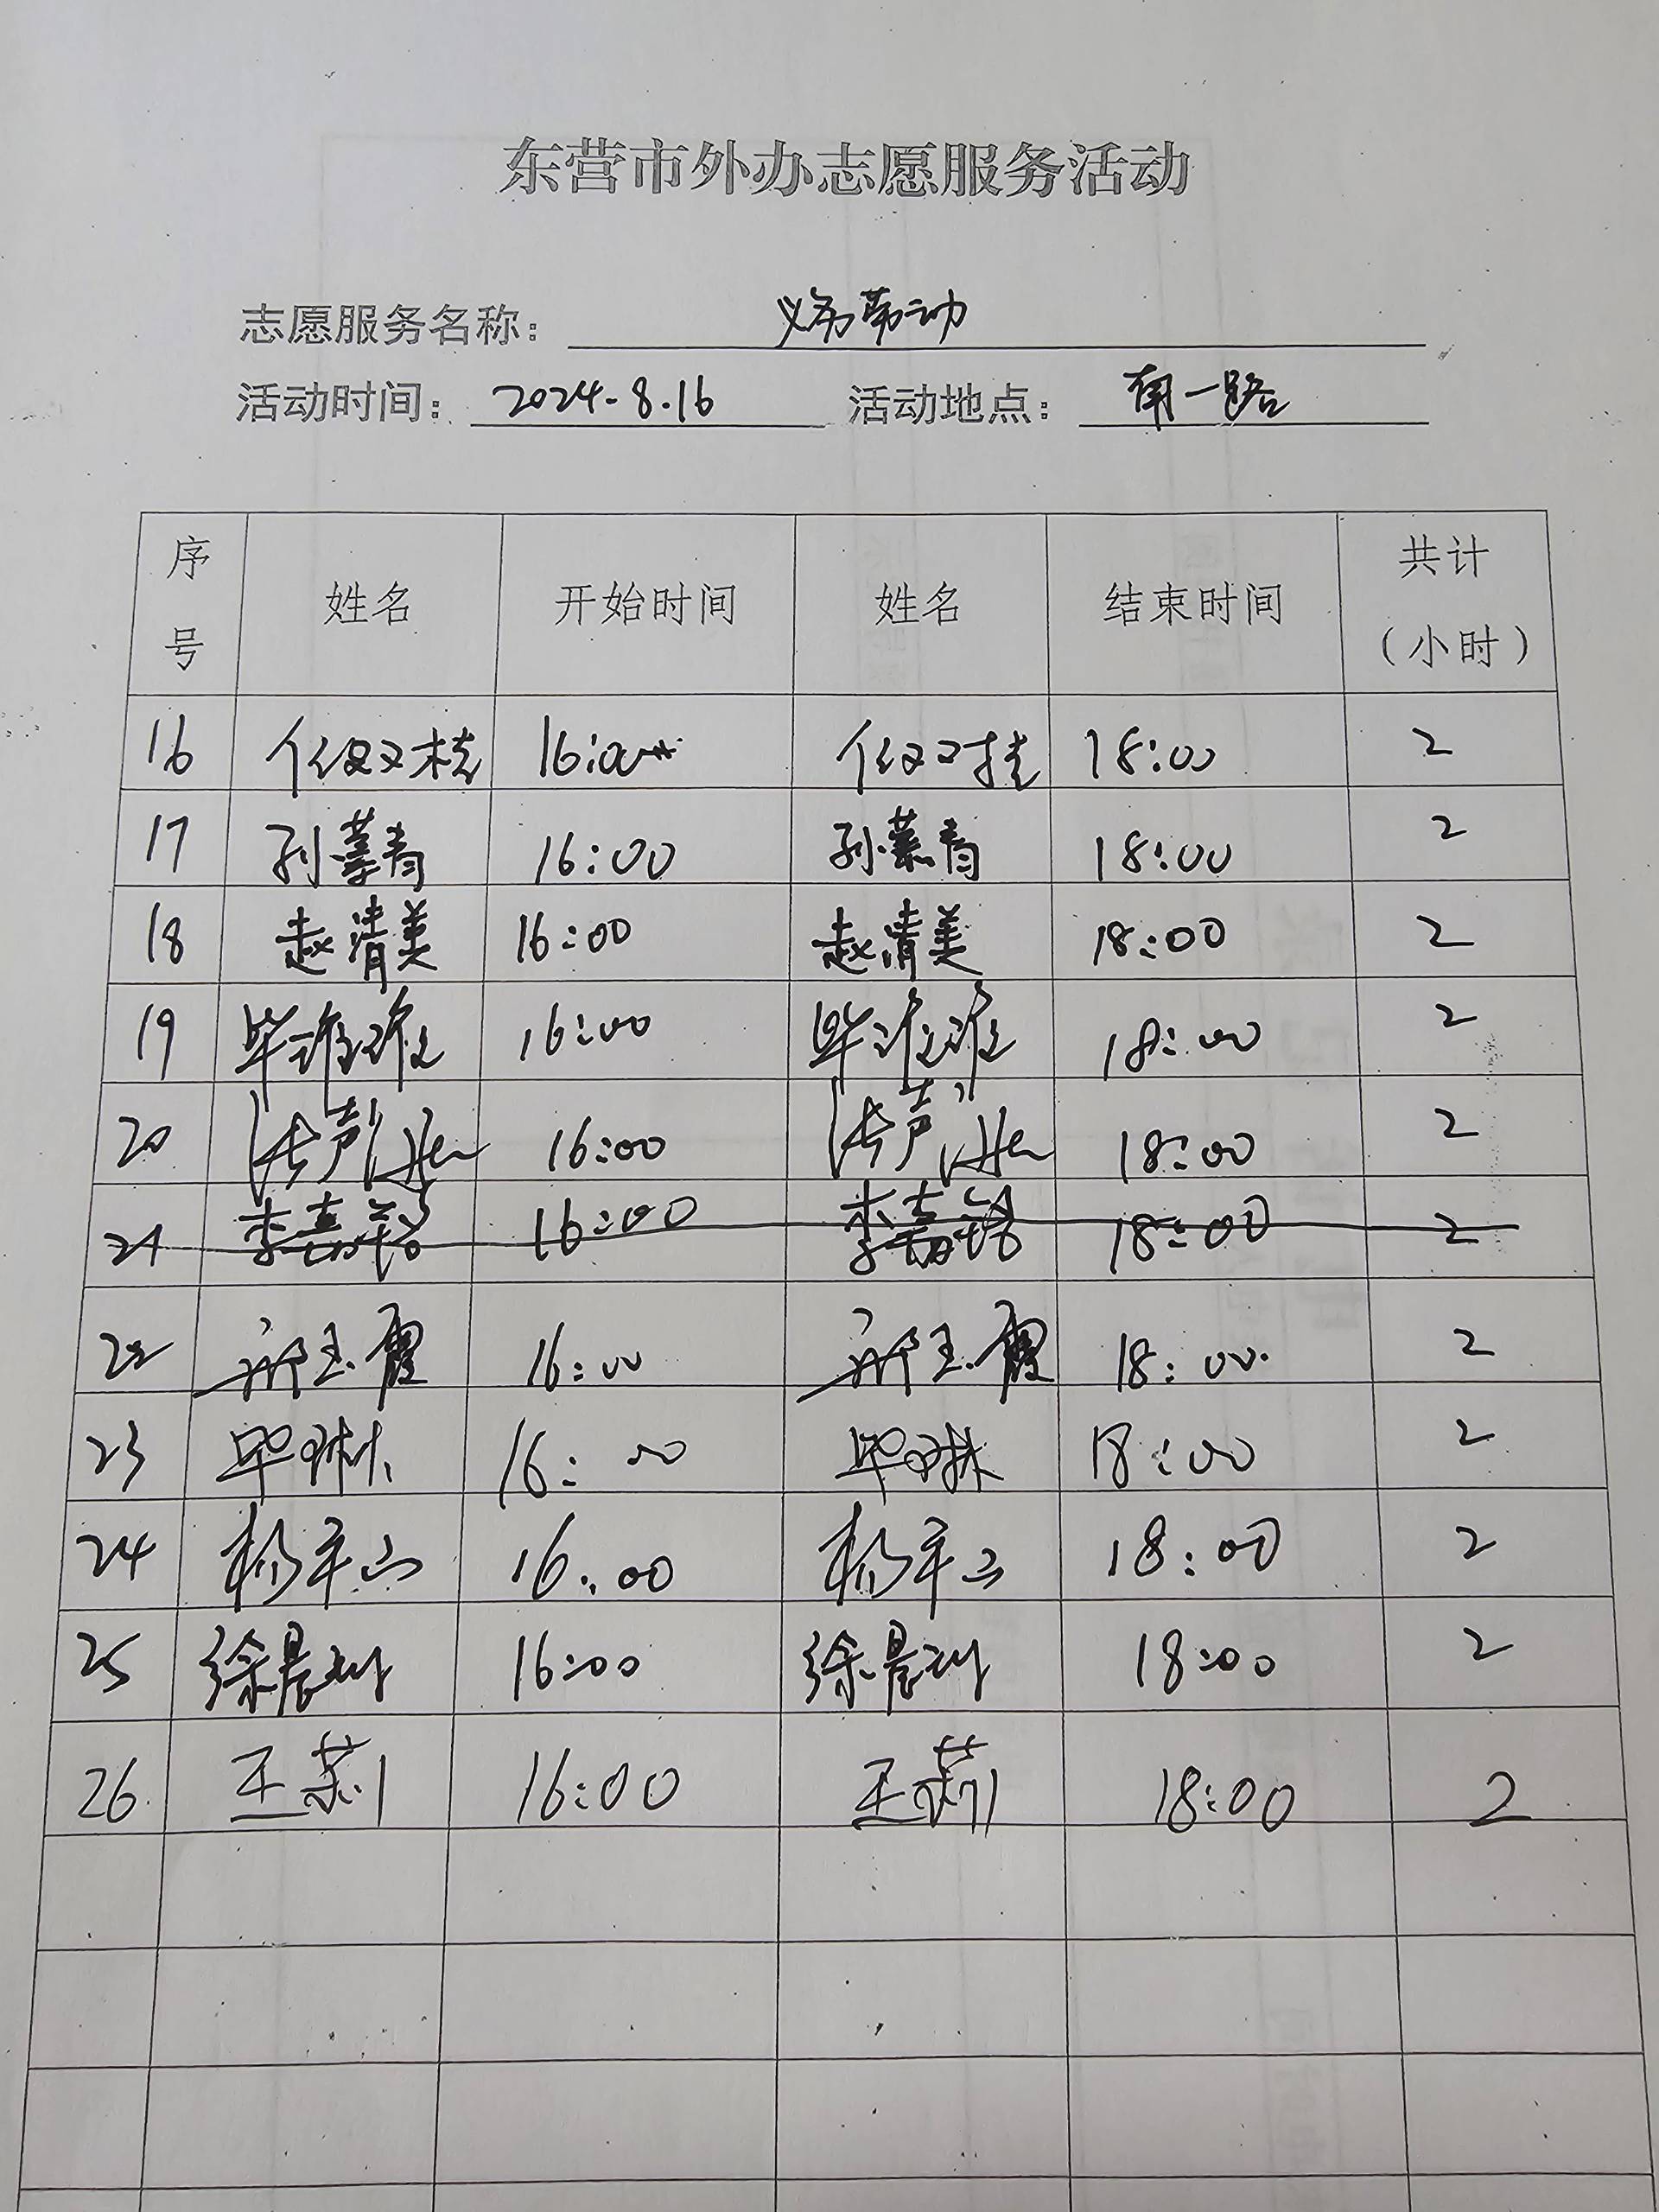 东营市外办志愿服务活动
志愿服务名称： 义务劳动
活动时间： 2024.8.16 活动地点： 南一路
序号 姓名 开始时间 姓名 结束时间 共计（小时）
16 16:00 18:00 2
17 孙慕青 16:00 孙慕青 18:00 2
18 赵清美 16:00 赵清美 18:00 2
19 16:00 18:00 2
20 16:00 18:00 2
21 李嘉铭 16:00 李嘉铭 18:00 2
22 玉霞 16:00 玉霞 18:00 2
23 毕琳 16:00 毕琳 18:00 2
24 杨 16:00 杨 18:00 2
25 徐晨 16:00 徐晨 18:00 2
26. 王莉 16:00 王莉 18:00 2